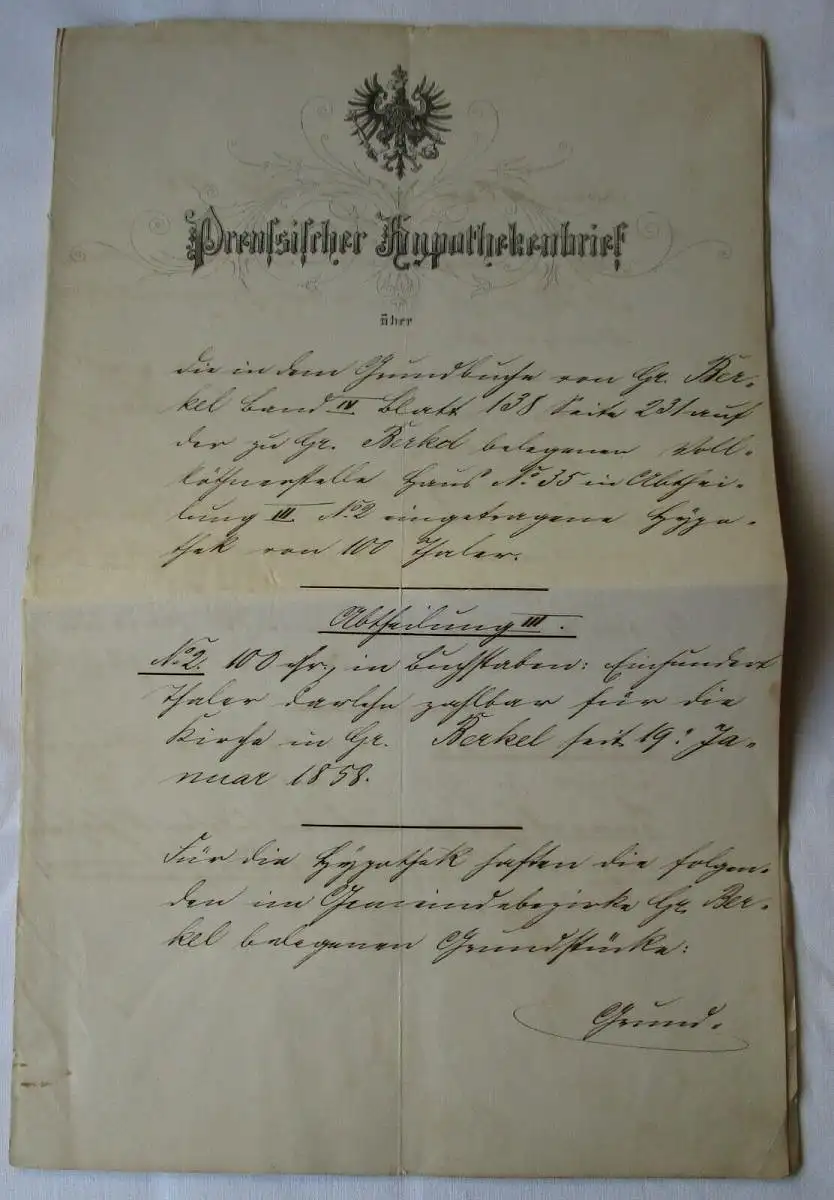 Preußischer Hypothekenbrief
über
die in dem Grundbuche von Gr. Ber-
kel Band IV Blatt 138 Seite 231 auf
der zu Gr. Berkel belegenen Voll-
köthnerstelle Haus No 35 in Abthei-
lung III No 2 eingetragene Hypo-
thek von 100 Thaler.
Abtheilung III.
No 2. 100 Thr., in Buchstaben: Einhundert
Thaler Darlehn zahlbar für die
Kirche in Gr. Berkel seit 19. Ja-
nuar 1858.
Für die Hypothek haften die folgen-
den im Gemeindebezirke Gr. Ber-
kel belegenen Grundstücke:
Grund-